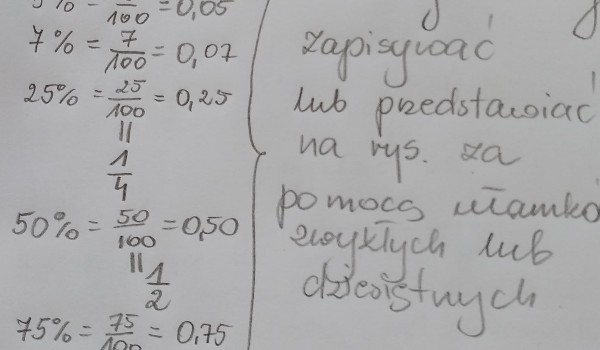 5% = 5/100 = 0,05
7% = 7/100 = 0,07
25% = 25/100 = 0,25
=
1/4
50% = 50/100 = 0,50
= 1/2
75% = 75/100 = 0,75
zapisywać
lub przedstawiać
na rys. za
pomocą ułamkó
zwykłych lub
dziesiętnych